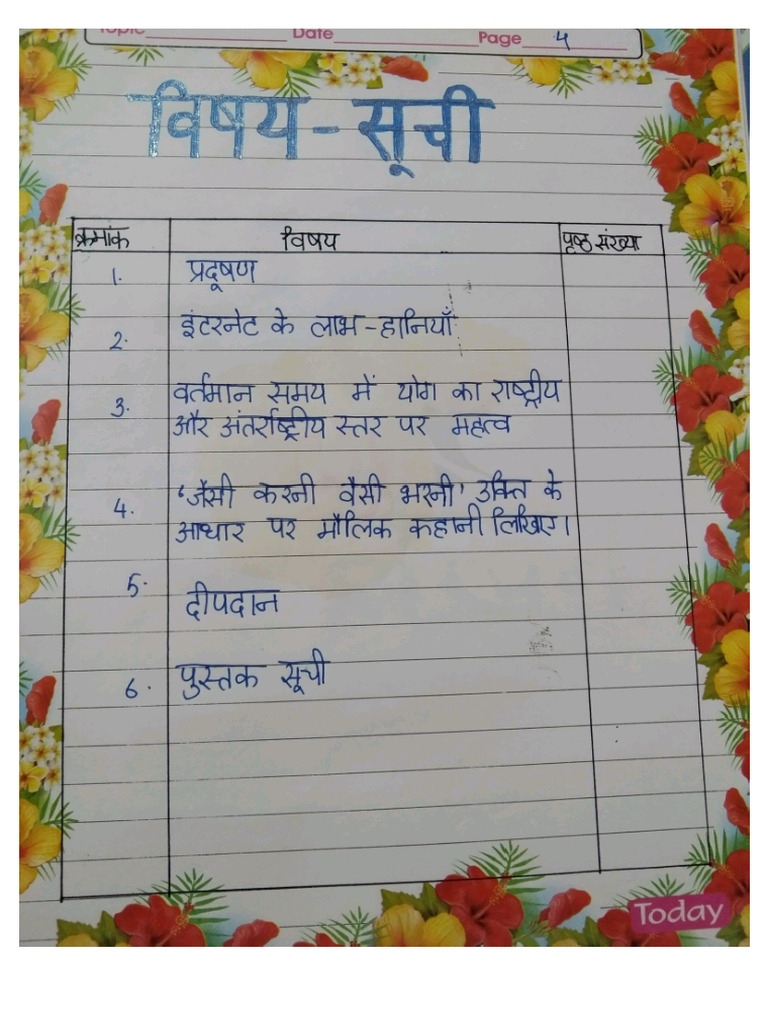 Topic Date Page 4
विषय-सूची
क्रमांक विषय पृष्ठ संख्या
1. प्रदूषण
2. इंटरनेट के लाभ-हानियाँ
3. वर्तमान समय में योग का राष्ट्रीय
और अंतर्राष्ट्रीय स्तर पर महत्व
4. 'जैसी करनी वैसी भरनी' उक्ति के
आधार पर मौलिक कहानी लिखिए।
5. दीपदान
6. पुस्तक सूची
Today